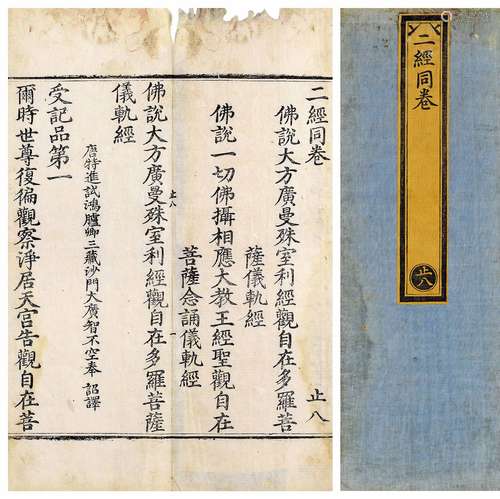 二經同卷
止八
佛說大方廣曼殊室利經觀自在多羅菩
薩儀軌經
佛說一切佛攝相應大教王經聖觀自在
菩薩念誦儀軌經
佛說大方廣曼殊室利經觀自在多羅菩薩
止八
一
儀軌經
唐特進試鴻臚卿三藏沙門大廣智不空奉 詔譯
受記品第一
爾時世尊復徧觀察淨居天宮告觀自在菩
二經同卷
止八